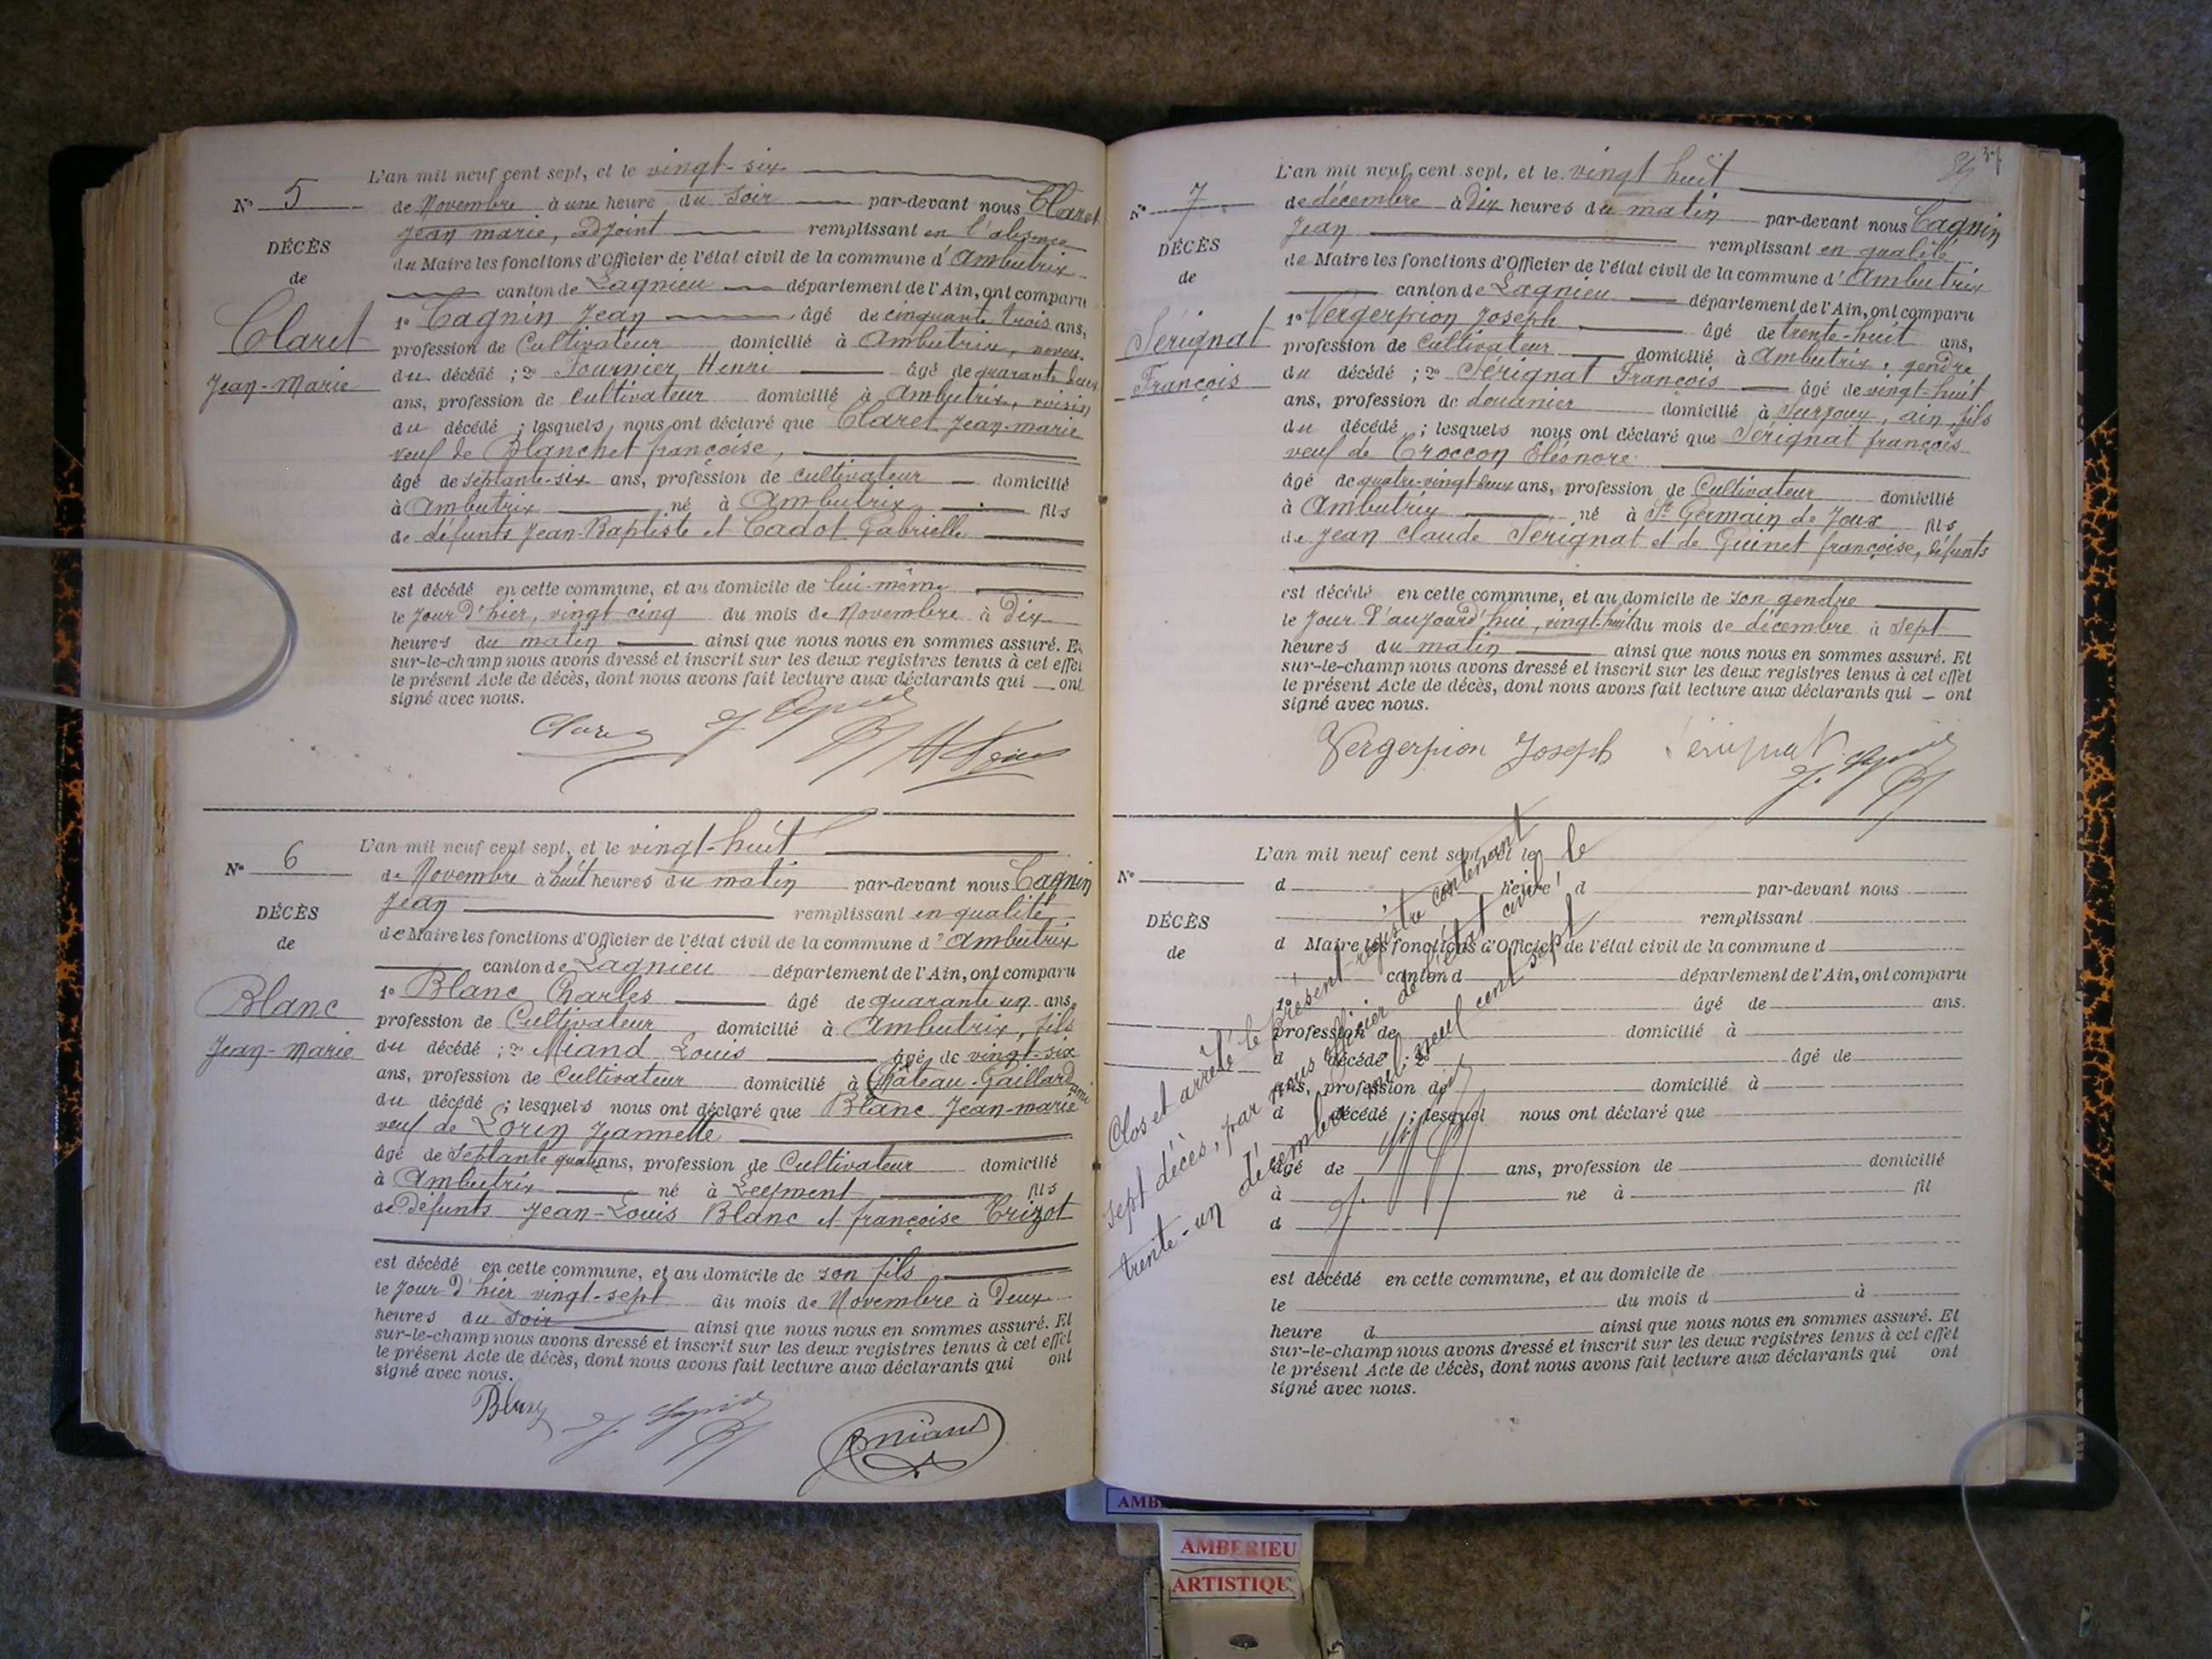 L'an mil neuf cent sept, et le vingt-six
N° 5
de Novembre à une heure du soir par-devant nous Claret
Jean marie, adjoint remplissant en l'absence
DÉCÈS
du Maire les fonctions d'Officier de l'état civil de la commune d'Ambutrix
de
canton de Lagnieu département de l'Ain, ont comparu
Claret
1° Cagnin Jean âgé de cinquante trois ans,
profession de Cultivateur domicilié à Ambutrix, neveu
Jean-Marie
du décédé ; 2° Fournier Henri âgé de quarante deux
ans, profession de Cultivateur domicilié à Ambutrix, voisin
du décédé ; lesquels nous ont déclaré que Claret Jean-marie
veuf de Blanchet françoise,
âgé de septante-six ans, profession de cultivateur domicilié
à Ambutrix né à Ambutrix fils
de défunts Jean-Baptiste et Cadot Gabrielle
est décédé en cette commune, et au domicile de lui-même
le jour d'hier, vingt cinq du mois de Novembre à Dix
heures du matin ainsi que nous nous en sommes assuré. Et
sur-le-champ nous avons dressé et inscrit sur les deux registres tenus à cet effet
le présent Acte de décès, dont nous avons fait lecture aux déclarants qui ont
signé avec nous.
Claret
L'an mil neuf cent sept, et le vingt-huit
N° 6
de Novembre à huit heures du matin par-devant nous Cagnin
Jean remplissant en qualité
DÉCÈS
de Maire les fonctions d'Officier de l'état civil de la commune d'Ambutrix
de
canton de Lagnieu département de l'Ain, ont comparu
Blanc
1° Blanc Charles âgé de quarante un ans,
profession de Cultivateur domicilié à Ambutrix, fils
Jean-Marie
du décédé ; 2° Miand Louis âgé de vingt-six
ans, profession de Cultivateur domicilié à Château-Gaillard ami
du décédé ; lesquels nous ont déclaré que Blanc Jean-marie
veuf de Lorin Jeannette
âgé de Septante quatre ans, profession de Cultivateur domicilié
à Ambutrix né à Leyment fils
de Défunts Jean-Louis Blanc et françoise Trizot
est décédé en cette commune, et au domicile de son fils
le jour d'hier vingt-sept du mois de Novembre à Deux
heures du soir ainsi que nous nous en sommes assuré. Et
sur-le-champ nous avons dressé et inscrit sur les deux registres tenus à cet effet
le présent Acte de décès, dont nous avons fait lecture aux déclarants qui ont
signé avec nous.
Blanc Miand
37
L'an mil neuf cent sept, et le vingt huit
N° 7
de décembre à Dix heures du matin par-devant nous Cagnin
Jean remplissant en qualité
DÉCÈS
de Maire les fonctions d'Officier de l'état civil de la commune d'Ambutrix
de
canton de Lagnieu département de l'Ain, ont comparu
Sérignat
1° Vergerpion Joseph âgé de trente-huit ans,
profession de Cultivateur domicilié à Ambutrix, gendre
François
du décédé ; 2° Sérignat François âgé de vingt-huit
ans, profession de douanier domicilié à Surjoux, ain, fils
du décédé ; lesquels nous ont déclaré que Sérignat françois
veuf de Croccon Eléonore
âgé de quatre-vingt deux ans, profession de Cultivateur domicilié
à Ambutrix né à St Germain de Joux fils
de Jean claude Sérignat et de Guinet françoise, défunts
est décédé en cette commune, et au domicile de son gendre
le jour d'aujourd'hui, vingt-huit du mois de décembre à Sept
heures du matin ainsi que nous nous en sommes assuré. Et
sur-le-champ nous avons dressé et inscrit sur les deux registres tenus à cet effet
le présent Acte de décès, dont nous avons fait lecture aux déclarants qui ont
signé avec nous.
Vergerpion Joseph Sérignat
L'an mil neuf cent sept, et le
N°
d heure d par-devant nous
remplissant
DÉCÈS
d Maire les fonctions d'Officier de l'état civil de la commune d
de
canton d département de l'Ain, ont comparu
1° âgé de ans.
profession de domicilié à
d décédé ; 2° âgé de
ans, profession de domicilié à
d décédé ; lesquel nous ont déclaré que
âgé de ans, profession de domicilié
à né à fil
d
est décédé en cette commune, et au domicile de
le du mois d à
heure d ainsi que nous nous en sommes assuré. Et
sur-le-champ nous avons dressé et inscrit sur les deux registres tenus à cet effet
le présent Acte de décès, dont nous avons fait lecture aux déclarants qui ont
signé avec nous.
Clos et arrêté le présent registre contenant
sept décès, par nous officier de l'état civil le
trente-un décembre mil neuf cent sept
AMB
AMBERIEU
ARTISTIQU